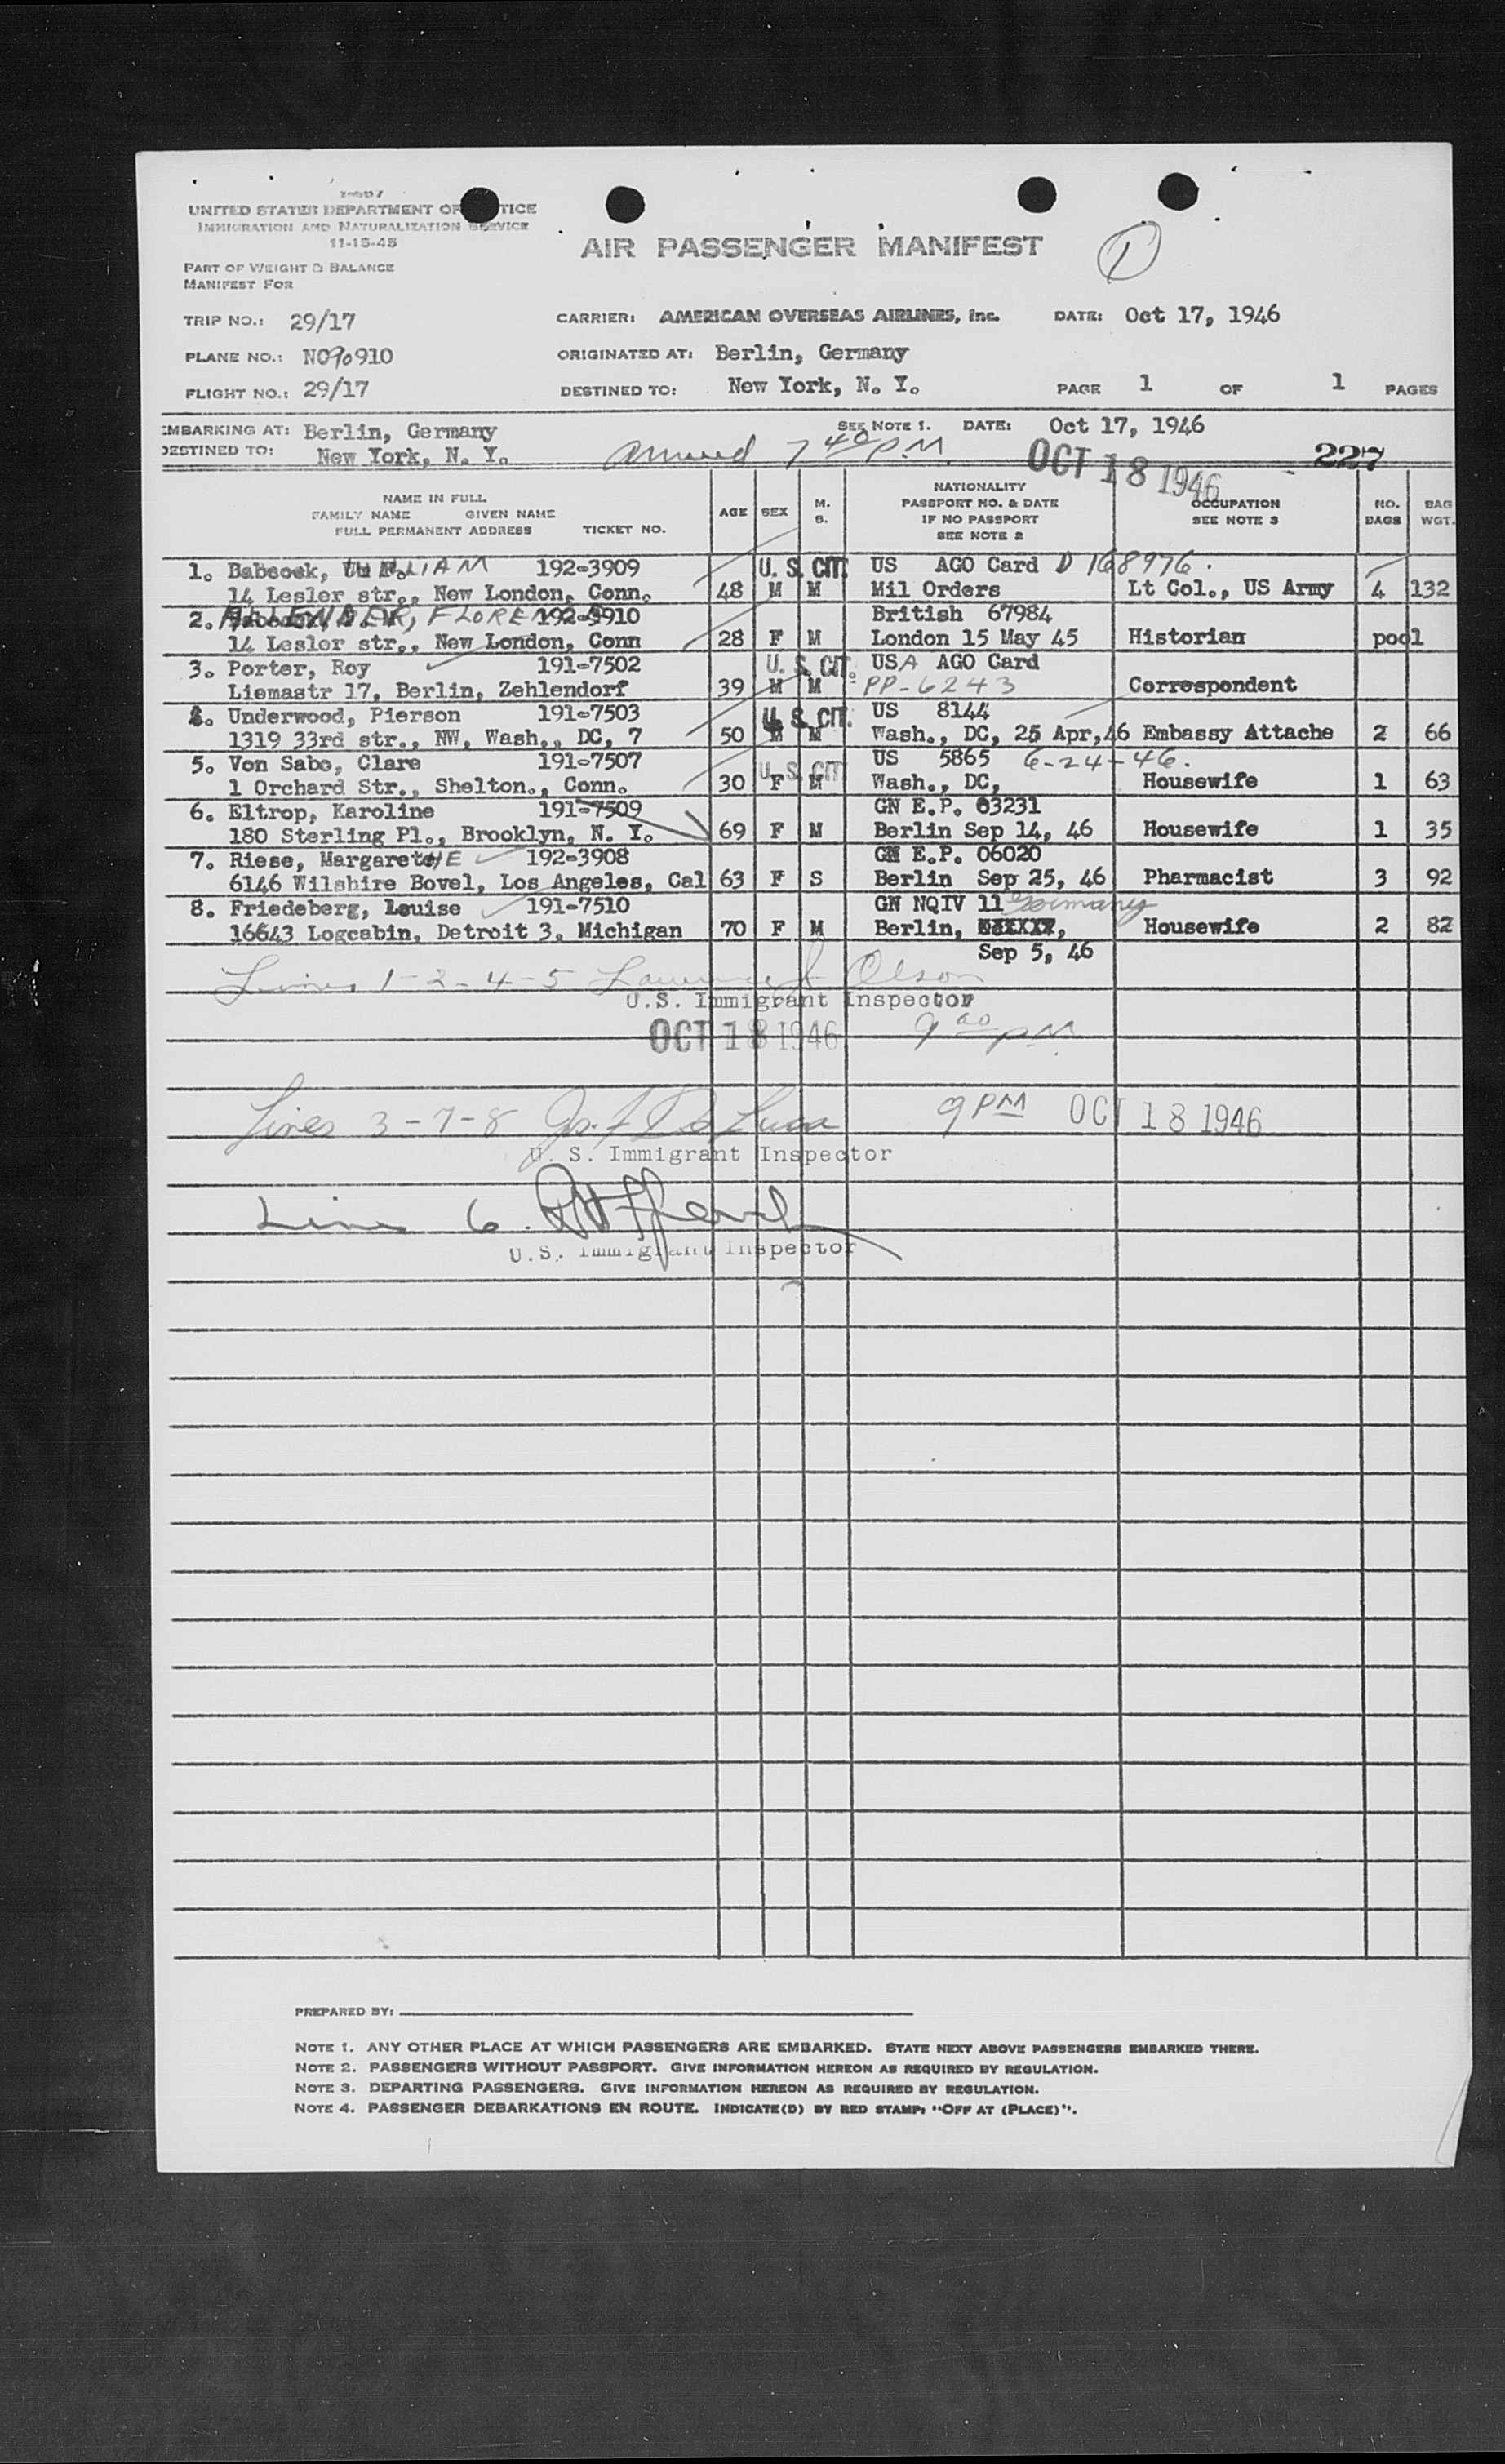 UNITED STATES DEPARTMENT OF JUSTICE
IMMIGRATION AND NATURALIZATION SERVICE
11-15-45
AIR PASSENGER MANIFEST
1
PART OF WEIGHT & BALANCE
MANIFEST FOR
TRIP NO.: 29/17 CARRIER: AMERICAN OVERSEAS AIRLINES, Inc. DATE: Oct 17, 1946
PLANE NO.: NC90910 ORIGINATED AT: Berlin, Germany
FLIGHT NO.: 29/17 DESTINED TO: New York, N. Y. PAGE 1 OF 1 PAGES
EMBARKING AT: Berlin, Germany SEE NOTE 1. DATE: Oct 17, 1946
DESTINED TO: New York, N. Y. arrived 7 40 PM OCT 18 1946 227
NAME IN FULL
FAMILY NAME GIVEN NAME
FULL PERMANENT ADDRESS TICKET NO.
AGE SEX M. S.
NATIONALITY
PASSPORT NO. & DATE
IF NO PASSPORT
SEE NOTE 2
OCCUPATION
SEE NOTE 3
NO. BAGS
BAG WGT.
1. Babcock, WILLIAM 192-3909 U. S. CIT. US AGO Card D 168976.
14 Lesler str., New London, Conn. 48 M M Mil Orders Lt Col., US Army 4 132
2. FLOREN 192-3910 British 67984
14 Lesler str., New London, Conn 28 F M London 15 May 45 Historian pool
3. Porter, Roy 191-7502 U. S. CIT. USA AGO Card
Liemastr 17, Berlin, Zehlendorf 39 M M PP-6243 Correspondent
4. Underwood, Pierson 191-7503 U. S. CIT. US 8144
1319 33rd str., NW, Wash., DC, 7 50 M M Wash., DC, 25 Apr,46 Embassy Attache 2 66
5. Von Sabo, Clare 191-7507 U. S. CIT US 5865 6-24-46.
1 Orchard Str., Shelton., Conn. 30 F M Wash., DC, Housewife 1 63
6. Eltrop, Karoline 191-7509 GN E.P. 03231
180 Sterling Pl., Brooklyn, N. Y. 69 F M Berlin Sep 14, 46 Housewife 1 35
7. Riese, MargaretHE 192-3908 GN E.P. 06020
6146 Wilshire Bovel, Los Angeles, Cal 63 F S Berlin Sep 25, 46 Pharmacist 3 92
8. Friedeberg, Louise 191-7510 GN NQIV 11 Germany
16643 Logcabin, Detroit 3, Michigan 70 F M Berlin, Housewife 2 82
Sep 5, 46
Lines 1-2-4-5 Lawrence J Olson
U.S. Immigrant Inspector
OCT 18 1946 9 00 PM
Lines 3-7-8 Jos. F De Luca 9 PM OCT 18 1946
U. S. Immigrant Inspector
Line 6.
U.S. Immigrant Inspector
PREPARED BY:
NOTE 1. ANY OTHER PLACE AT WHICH PASSENGERS ARE EMBARKED. STATE NEXT ABOVE PASSENGERS EMBARKED THERE.
NOTE 2. PASSENGERS WITHOUT PASSPORT. GIVE INFORMATION HEREON AS REQUIRED BY REGULATION.
NOTE 3. DEPARTING PASSENGERS. GIVE INFORMATION HEREON AS REQUIRED BY REGULATION.
NOTE 4. PASSENGER DEBARKATIONS EN ROUTE. INDICATE(D) BY RED STAMP: "OFF AT (PLACE)".